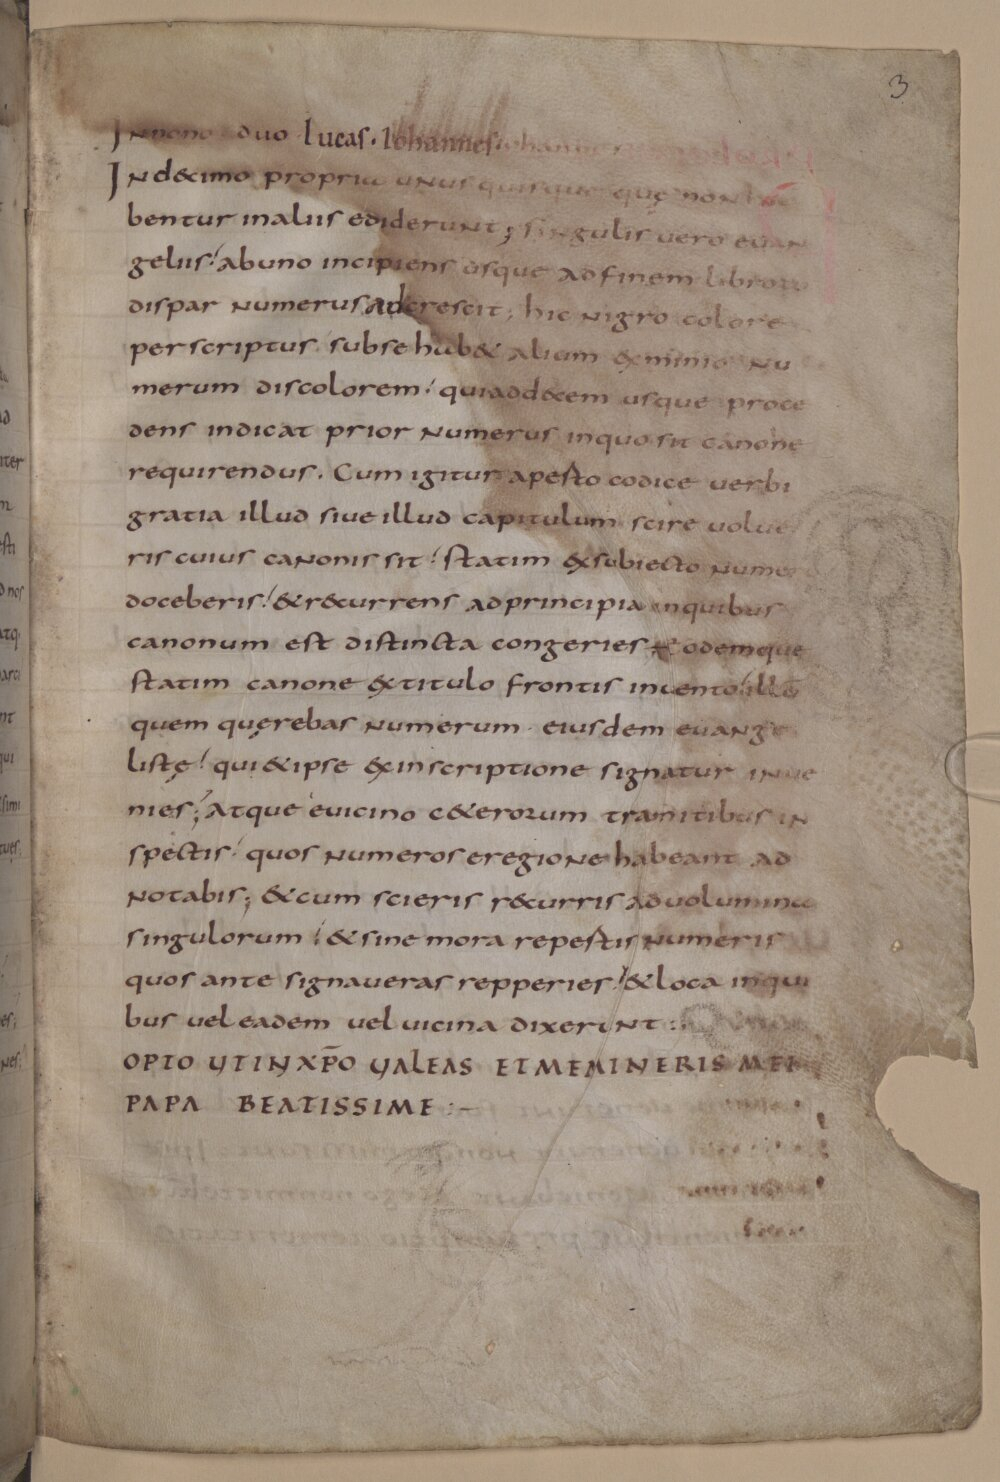 3
In nono duo lucas. Iohannes.
In decimo propria unusquisque quę non ha
bentur inaliis ediderunt; singulis vero euan
geliis; abuno incipiens usque adfinem libroru
dispar numerus adcrescit; hic nigro colore
perscriptus subse hab& alium exminio nu
merum discolorem; quiadd&cem usque proce
dens indicat prior numerus inquo sit canone
requirendus. Cum igitur apesto codice verbi
gratia illud siue illud capitulum scire uolue
ris cuius canonis sit; statim exsubiecto nume
doceberis; &r&currens adprincipia inquibus
canonum est distincta congeries eodemque
statim canone extitulo frontis inuento illū
quem quęrebas numerum eiusdem euange
listę; qui&ipse exinscriptione signatur inue
nies; Atque euicino c&erorum tramitibus in
spectis; quos numeros eregione habeant ad
notabis; &cum scieris r&curris aduolumina
singulorum; &sine mora repestis numeris
quos ante signaueras repperies; &loca inqui
bus uel eadem uel uicina dixerunt:
OPTO UTINXP̄O UALEAS ETMEMINERIS MEI
PAPA BEATISSIME:–